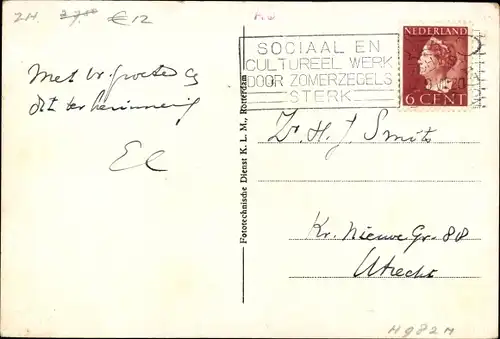 Z.H. 27.50 €12
SOCIAAL EN
CULTUREEL WERK
DOOR ZOMERZEGELS
STERK
NEDERLAND
6 CENT
Met vr. groeten
dit ter herinnering
EC
Fototechnische Dienst K. L. M., Rotterdam
H. J. Smits
Kr. Nieuwe Gr. 88
Utrecht
H982M